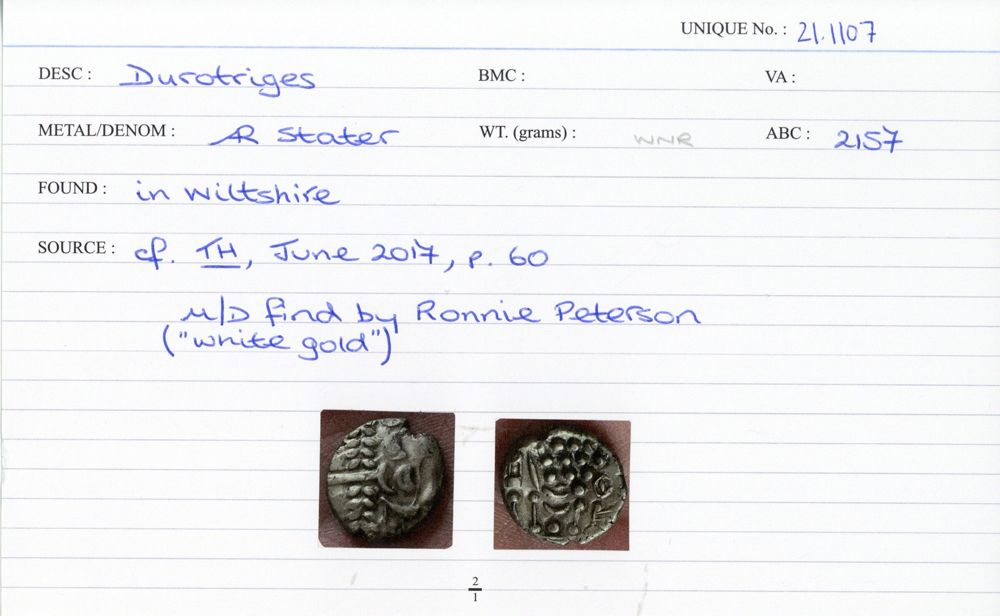 UNIQUE No. : 21.1107
DESC : Durotriges BMC : VA :
METAL/DENOM : AR Stater WT. (grams) : WNR ABC : 2157
FOUND : in Wiltshire
SOURCE : cf. TH, June 2017, p. 60
M/D find by Ronnie Peterson
("white gold")
2
1